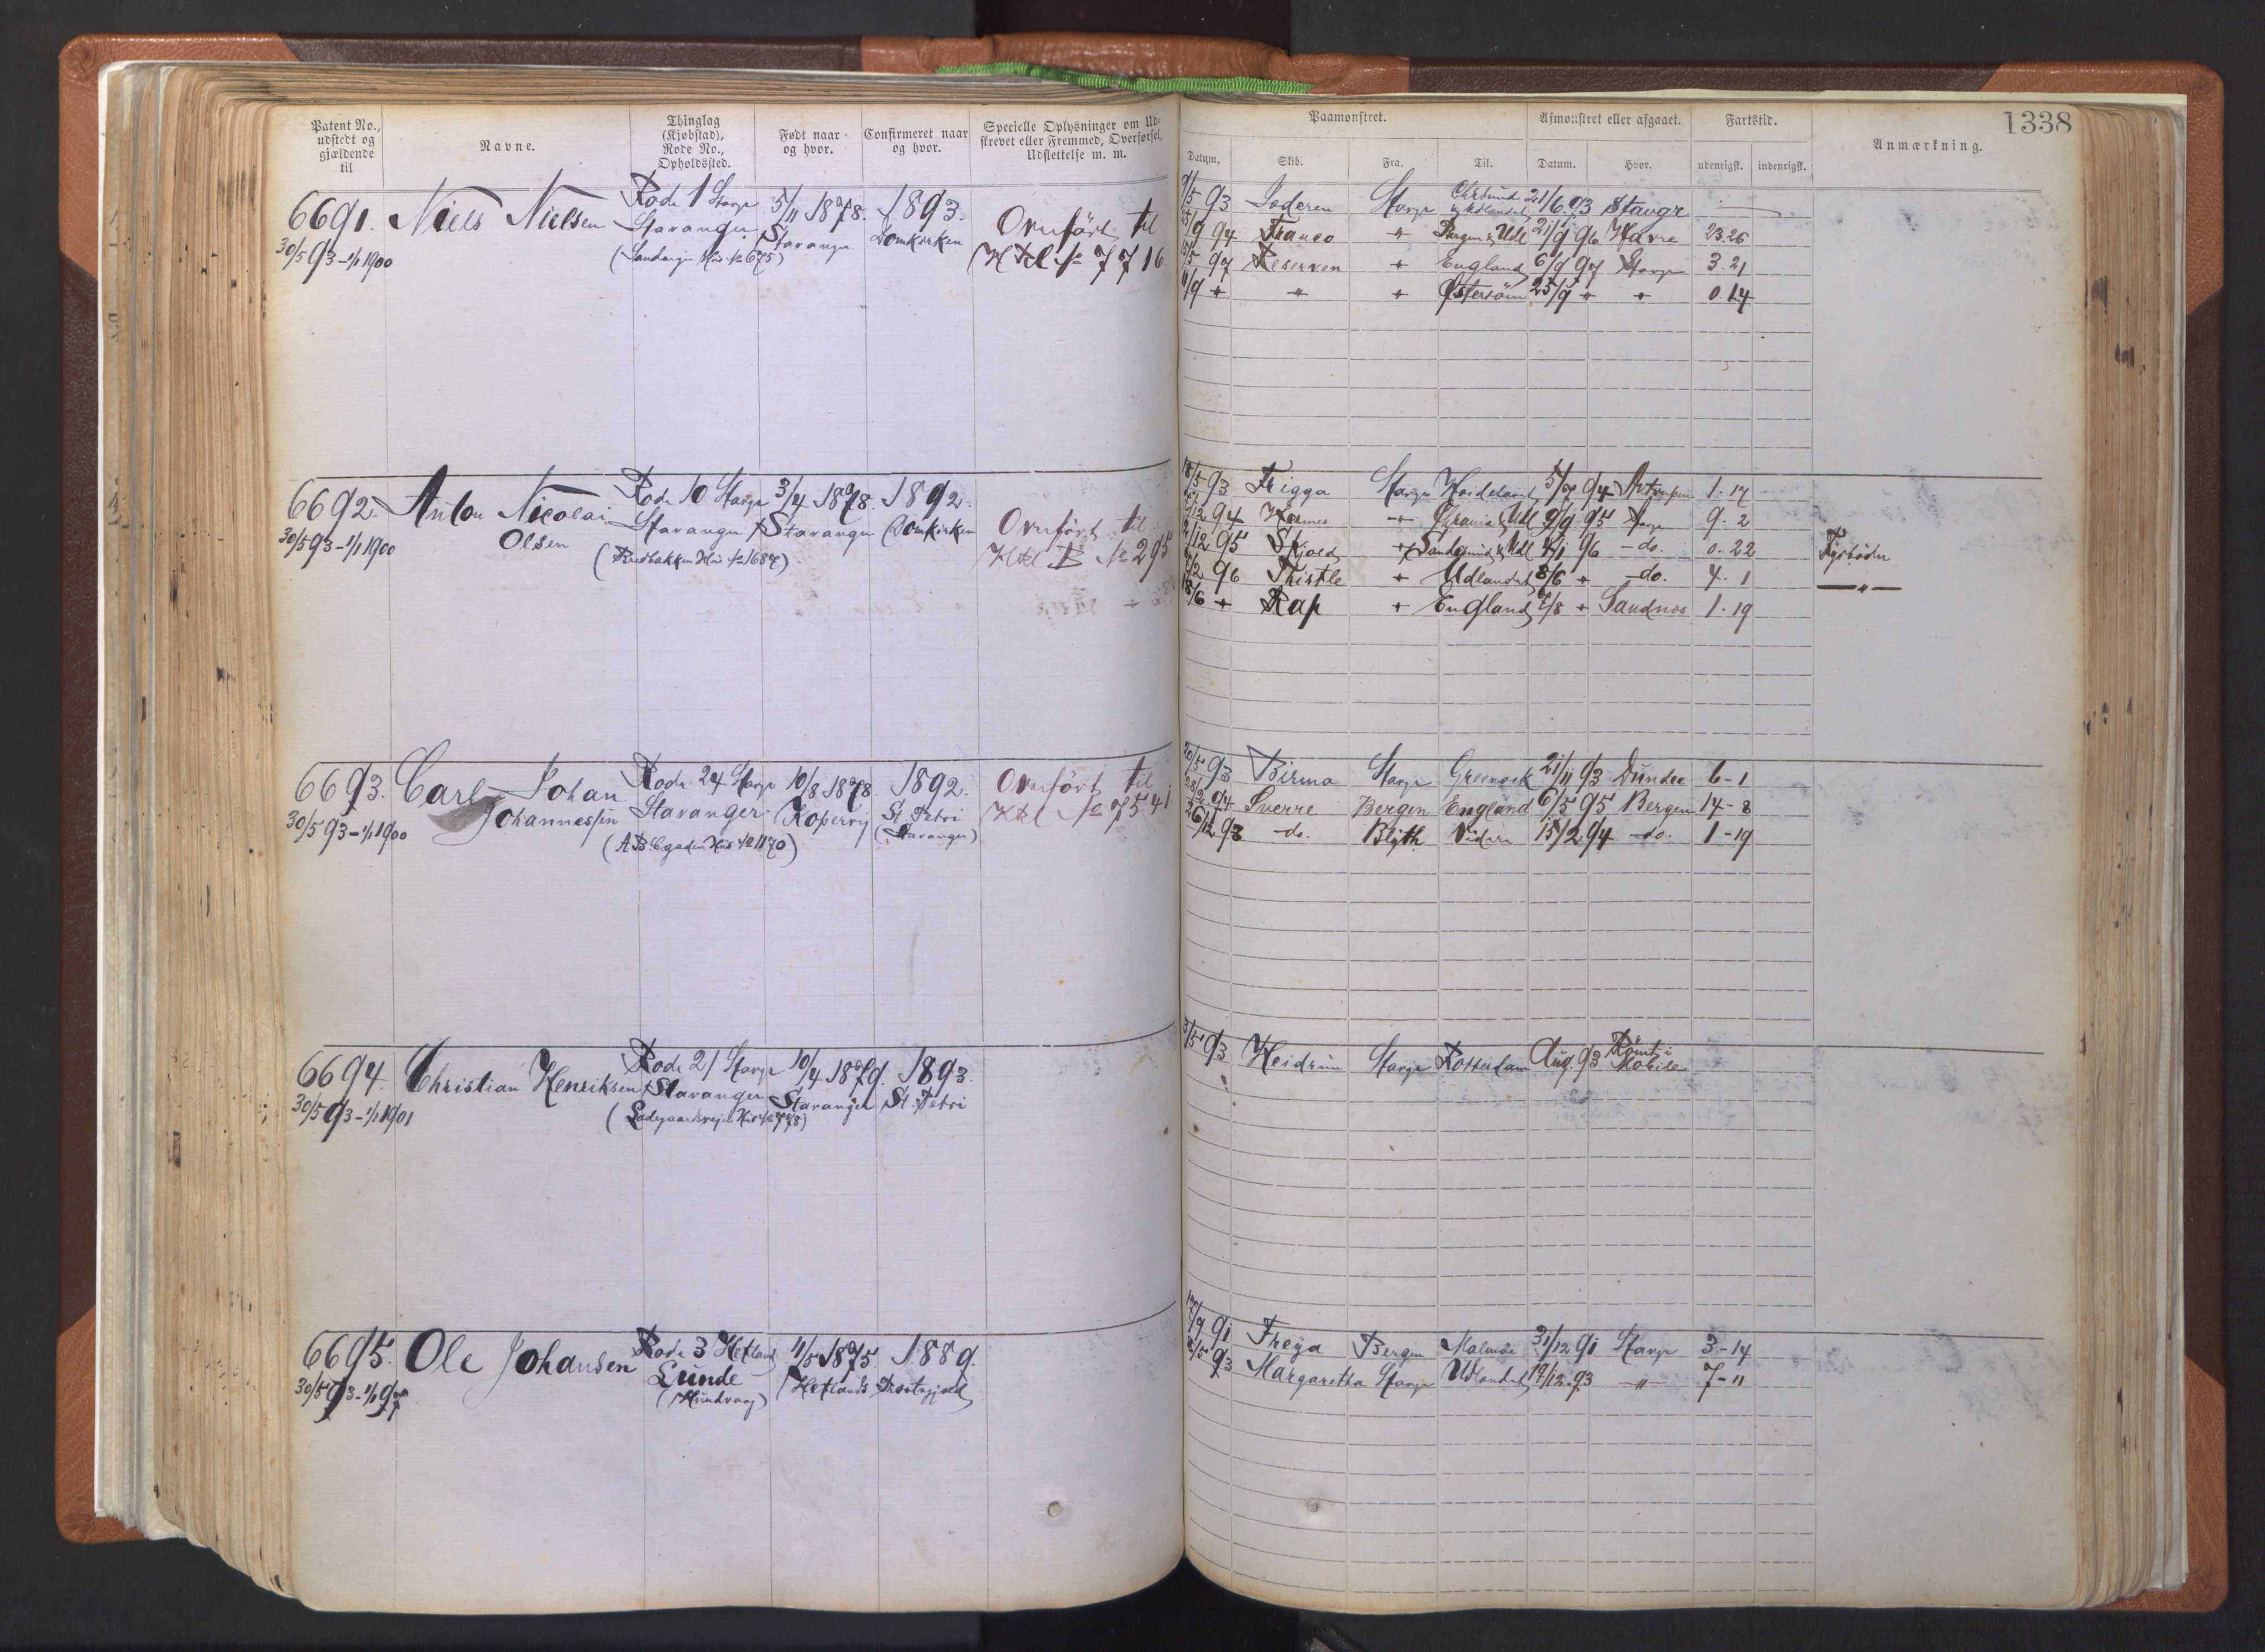 1338
Patent No., udstedt og gjældende til
Navne.
Thinglag (Kjøbstad), Rode No., Opholdssted.
Født naar og hvor.
Confirmeret naar og hvor.
Specielle Oplysninger om Udskrevet eller Fremmed, Overførsel, Udslettelse m. m.
Paamønstret.
Afmønstret eller afgaaet.
Fartstid.
Anmærkning.
Datum. Skib. Fra. Til. Datum. Hvor. udenrigsk. indenrigsk.
6691. Niels Nielsen Rode 1 Stavgr 5/11 1878. 1893.
Stavanger Stavanger Domkirken
30/5 93 - 1/1 1900
Overført til
No 7716
/5 93 Joderen Stavgr 21/6 93 Stavgr
/9 94 Franco " Bergen & Udl 21/9 96 Havre 23.26
/5 97 Reserven " England 6/9 97 Stavgr 3.21
11/9 " " " Østersöen 25/9 " " 0.14
6692. Anton Nicolai Rode 10 Stavgr 3/4 1878. 1892.
Olsen Stavanger Stavanger Domkirken
30/5 93 - 1/1 1900
Overført til
B No 295
18/5 93 Frigga Stavgr 5/7 94 1.17
/12 94 Hermes " & Udl 9/9 95 Stavgr 9.2
/12 95 Skjold " & Udl /1 96 - do. 0.22 Fyrbøder
/2 96 Thistle " Udlandet 8/6 " - do. 4.1 - " -
18/6 " Rap " England /8 " Sandnes 1.19
6693. Carl Johan Rode 24 Stavgr 10/8 1878. 1892.
Johannessen Stavanger Kopervig St. Petri
(Stavanger)
30/5 93 - 1/1 1900
(ABCgaden Hus No 1170)
Overført til
No 7541
20/5 93 Birma Stavgr Greenock 21/11 93 Dundee 6-1
28/2 94 Sverre Bergen England 6/5 95 Bergen 14-8
26/12 93 - do. Blyth 15/2 94 - do. 1-19
6694. Christian Henriksen Rode 21 Stavgr 10/4 1879. 1893.
Stavanger Stavanger St. Petri
30/5 93 - 1/1 1901
(Ladegaardsvejen Hus No 778)
/5 93 Heidrun Stavgr Rotterdam Aug. 93 Römt i
Mobile
6695. Ole Johansen Rode 3 Hetland 11/5 1875. 1889.
Lunde Hetlands Præstegjæld
30/5 93 - 1/1 97
(Hundvaag)
17/9 91 Freya Bergen Malmöe 31/12 91 Stavgr 3-14
/5 93 Margaretha Stavgr Udlandet 19/12 93 " 7-11